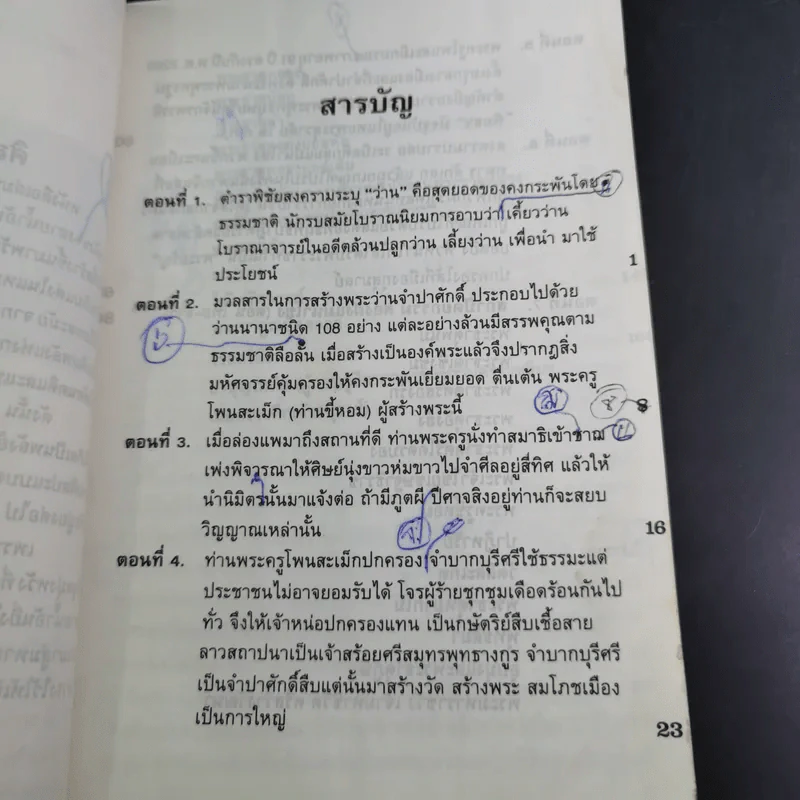 สารบัญ
ตอนที่ 1. ตำราพิชัยสงครามระบุ "ว่าน" คือสุดยอดของคงกระพันโดย
ธรรมชาติ นักรบสมัยโบราณนิยมการอาบว่า เคี้ยวว่าน
โบราณาจารย์ในอดีตล้วนปลูกว่าน เลี้ยงว่าน เพื่อนำ มาใช้
ประโยชน์ 1
ตอนที่ 2. มวลสารในการสร้างพระว่านจำปาศักดิ์ ประกอบไปด้วย
ว่านนานาชนิด 108 อย่าง แต่ละอย่างล้วนมีสรรพคุณตาม
ธรรมชาติลือลั้น เมื่อสร้างเป็นองค์พระแล้วจึงปรากฎสิ่ง
มหัศจรรย์คุ้มครองให้คงกระพันเยี่ยมยอด ตื่นเต้น พระครู
โพนสะเม็ก (ท่านขี้หอม) ผู้สร้างพระนี้ 8
ตอนที่ 3. เมื่อล่องแพมาถึงสถานที่ดี ท่านพระครูนั่งทำสมาธิเข้าฌาณ
เพ่งพิจารณาให้ศิษย์นุ่งขาวห่มขาวไปจำศีลอยู่สี่ทิศ แล้วให้
นำนิมิตรนั้นมาแจ้งต่อ ถ้ามีภูตผี ปีศาจสิงอยู่ท่านก็จะสยบ
วิญญาณเหล่านั้น 16
ตอนที่ 4. ท่านพระครูโพนสะเม็กปกครอง จำบากบุรีศรีใช้ธรรมะแต่
ประชาชนไม่อาจยอมรับได้ โจรผู้ร้ายชุกชุมเดือดร้อนกันไป
ทั่ว จึงให้เจ้าหน่อปกครองแทน เป็นกษัตริย์สืบเชื้อสาย
ลาวสถาปนาเป็นเจ้าสร้อยศรีสมุทรพุทธางกูร จำบากบุรีศรี
เป็นจำปาศักดิ์สืบแต่นั้นมาสร้างวัด สร้างพระ สมโภชเมือง
เป็นการใหญ่ 23